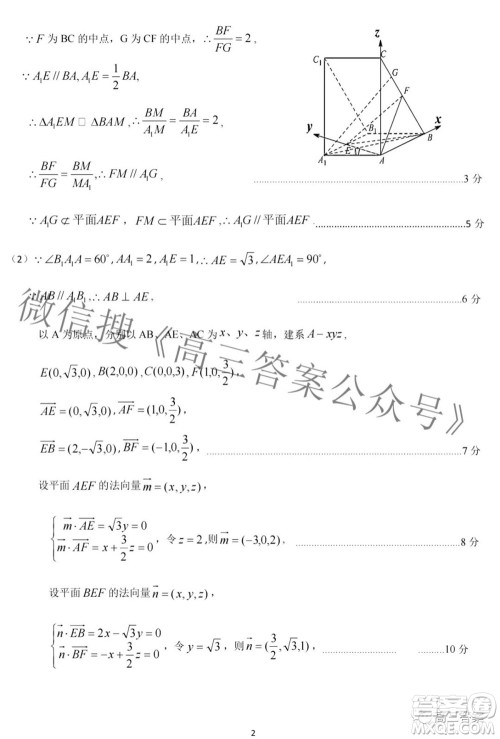 ∵ F 为 BC 的中点，G 为 CF 的中点，∴ BF/FG = 2，
∵ A₁E // BA, A₁E = 1/2 BA,
∴ ΔA₁EM □ ΔBAM，∴ BM/A₁M = BA/A₁E = 2，
∴ BF/FG = BM/MA₁，∴ FM // A₁G， ……3 分
∵ A₁G ⊄ 平面AEF，FM ⊂ 平面AEF，∴ A₁G // 平面AEF ……5 分
z
C₁ C
G
F
x
y B₁ B
E
A₁ A
（2）∵ ∠B₁A₁A = 60°, AA₁ = 2, A₁E = 1, ∴ AE = √3, ∠AEA₁ = 90°,
∵ AB // A₁B₁ ∴ AB ⊥ AE， ……6 分
以 A 为原点，分别以 AB、AE、AC 为 x、y、z 轴，建系 A－xyz，
E(0,√3,0) B(2,0,0) C(0,0,3) F(1,0,3/2)
AE = (0,√3,0), AF = (1,0,3/2)
EB = (2,-√3,0), BF = (-1,0,3/2) ……7 分
设平面 AEF 的法向量 m = (x, y, z)，
{ m·AE = √3y = 0
m·AF = x + 3/2 z = 0 ，令 z = 2 ,则 m = (-3,0,2) ……8 分
设平面 BEF 的法向量 n = (x, y, z)，
{ n·EB = 2x - √3y = 0
n·BF = -x + 3/2 z = 0 ，令 y = √3，则 n = (3/2, √3, 1)， ……10 分
微信搜《高三答案公众号》
高三答案
2